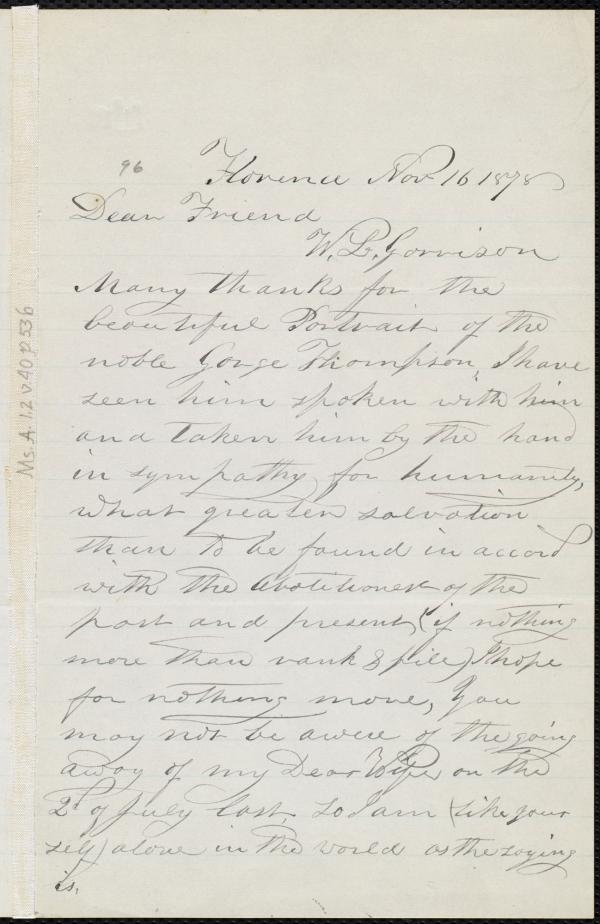 96
Florence Nov 16 1878
Dear Friend
W. L. Garrison
Many thanks for the
beautiful Portrait of the
noble Gorge Thompson, I have
seen him spoken with him
and taken him by the hand
in sympathy for humanity,
what greater salvation
than to be found in accord
with the abolitionest of the
past and present, (if nothing
more than rank & file) I hope
for nothing more, You
may not be awere of the going
away of my Dear Wife on the
2d of July last, so I am (like your
self) alone in the world as the saying
is.
Ms. A. 1.2 v. 40 p. 53b